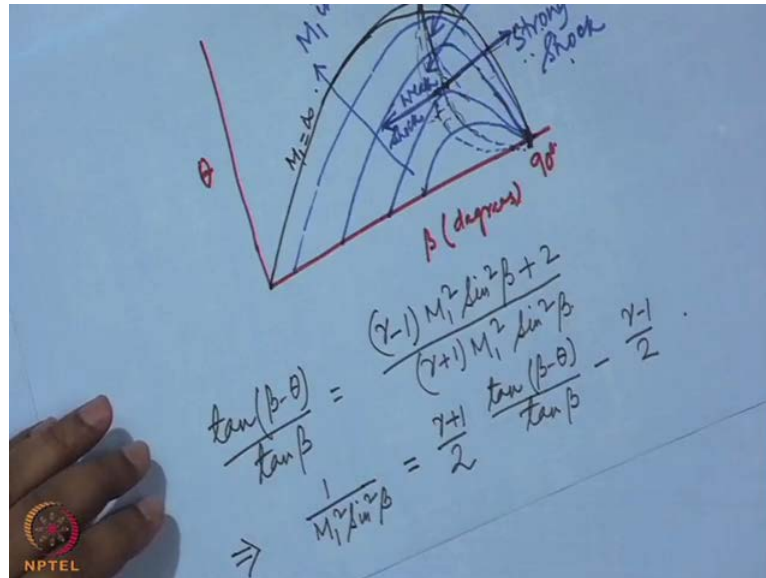 M₁
strong
shock
weak
shock
M₁ = ∞
θ
90°
β (degrees)
tan(β-θ)/tanβ = ((γ-1) M₁² sin²β + 2)/((γ+1) M₁² sin²β)
⇒ 1/(M₁² sin²β) = (γ+1)/2 tan(β-θ)/tanβ - (γ-1)/2 .
NPTEL